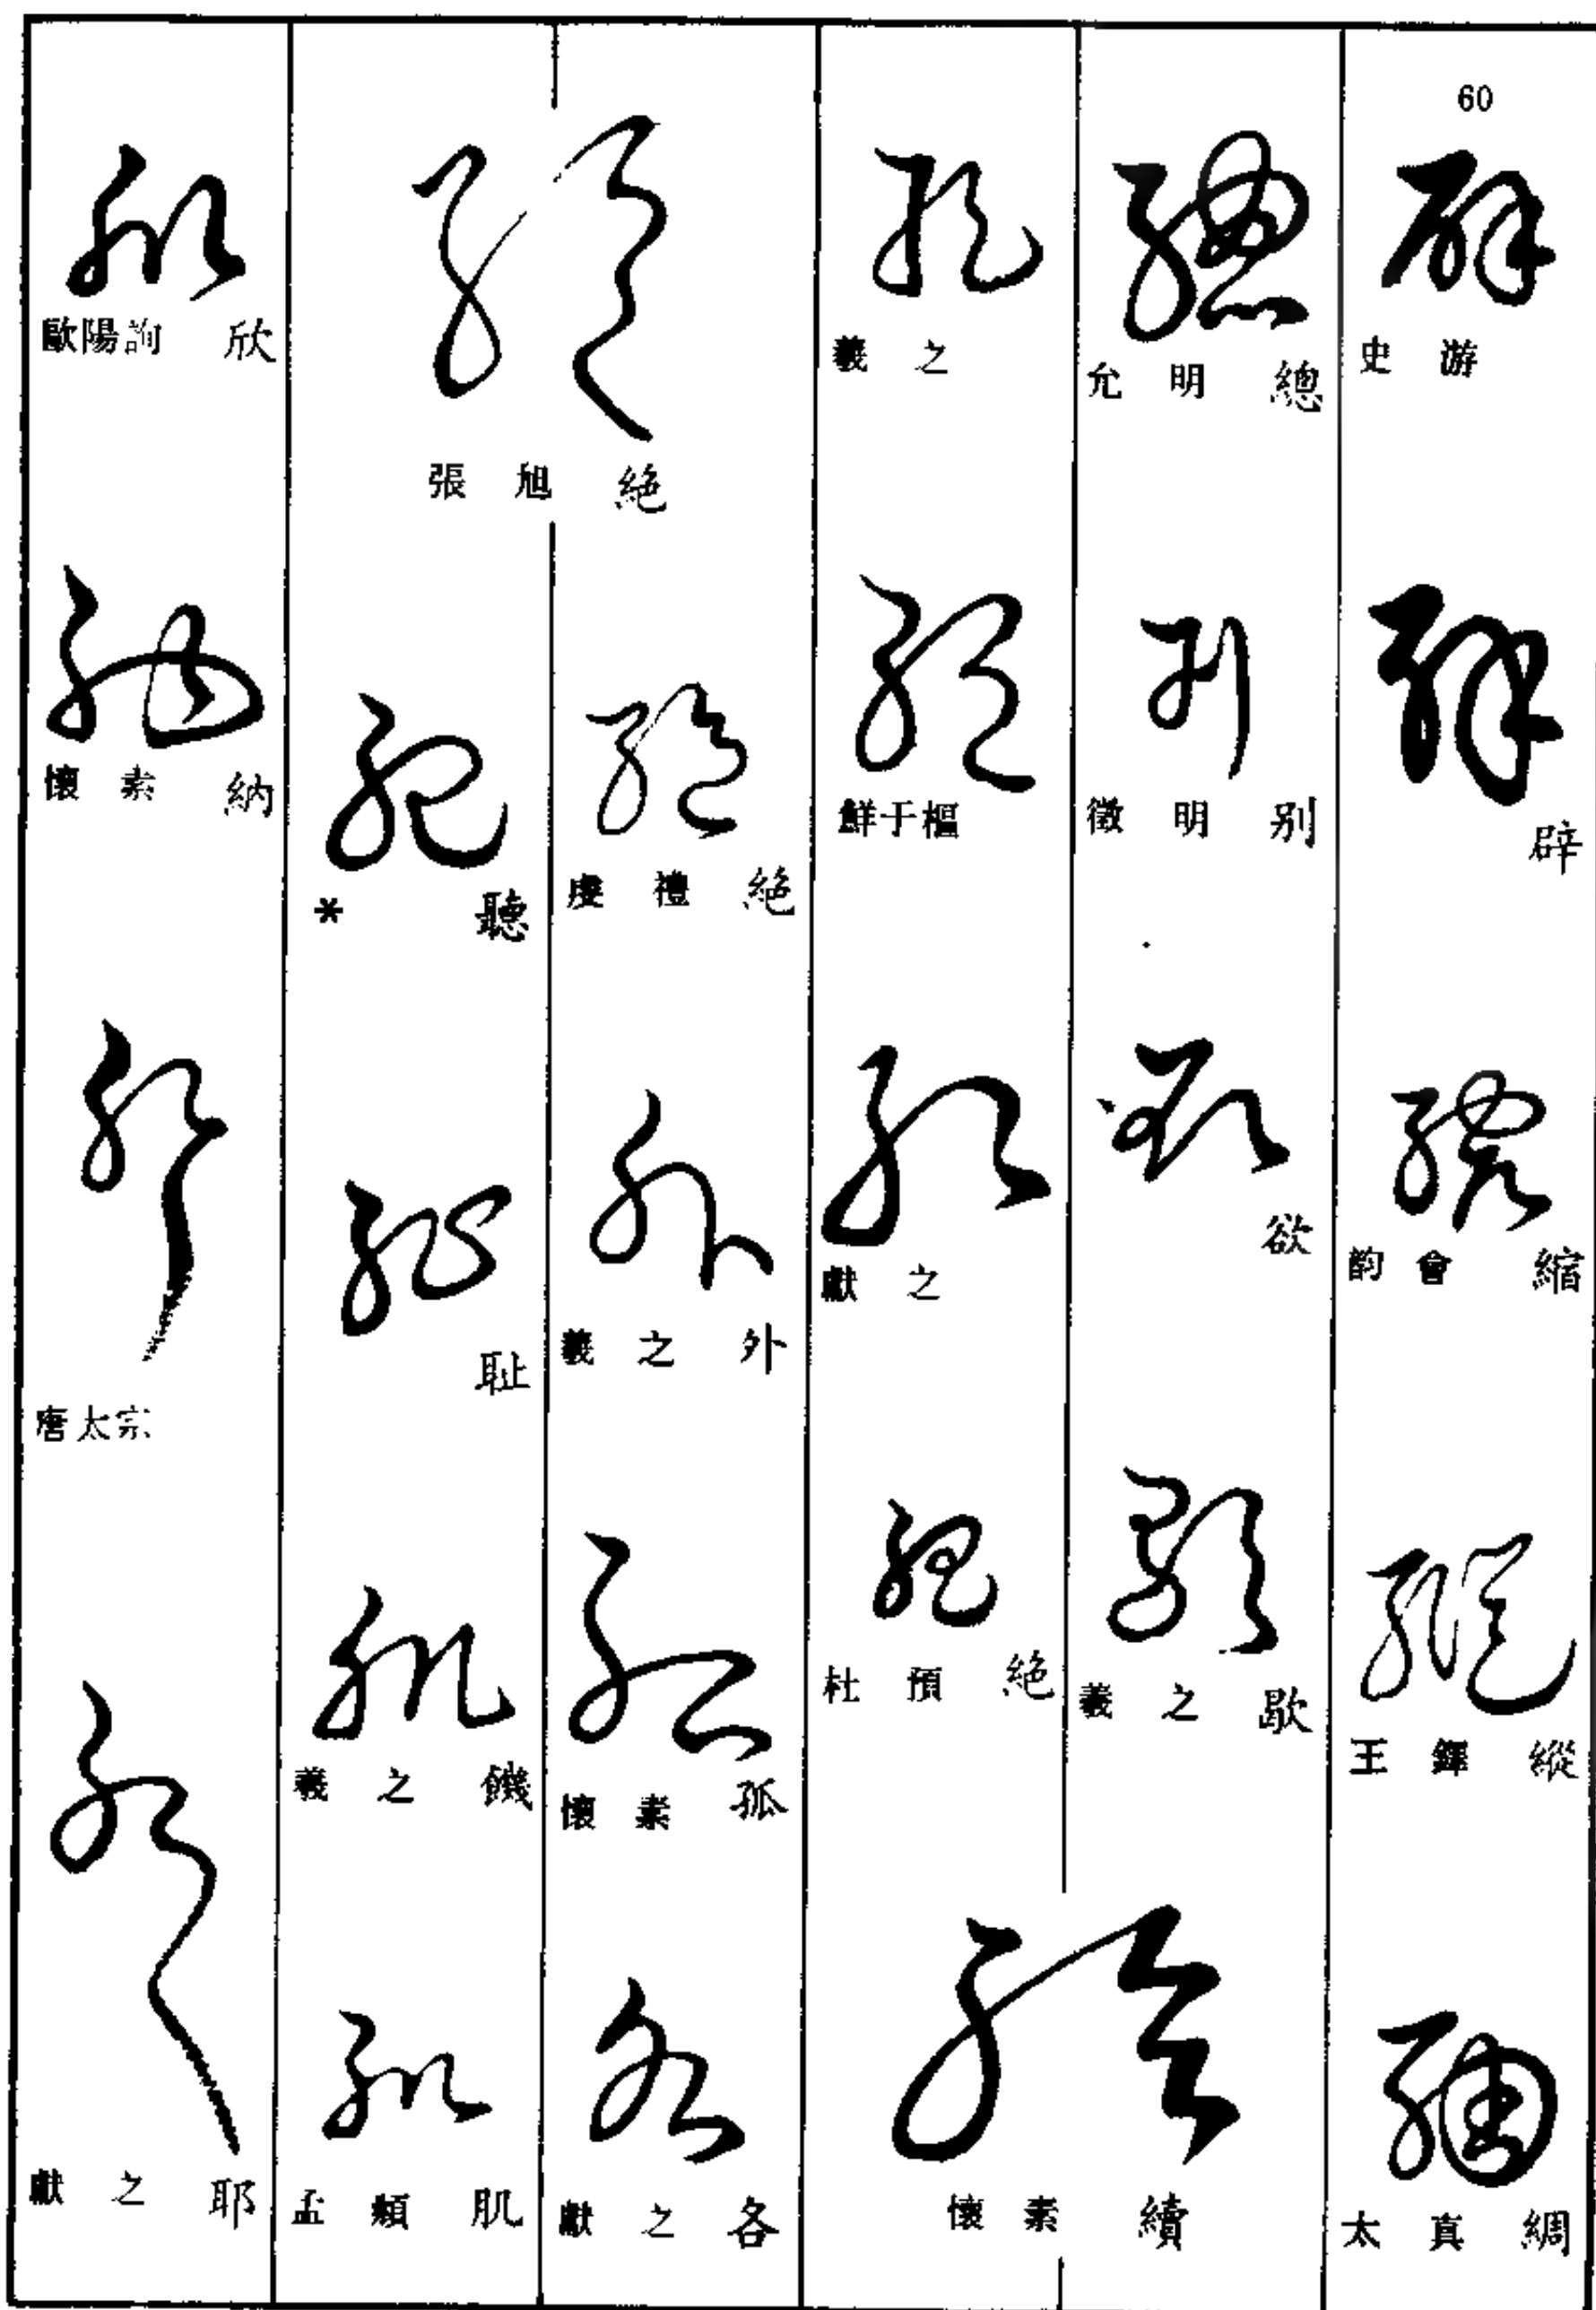 60
史游
辟
韵會 縮
王鐸 縱
太真 綢
允明 總
徵明 别
欲
羲之 歇
懷素 續
羲之
鮮于樞
獻之
杜預 絶
張旭 絶
虞禮 絶
羲之 外
懷素 孤
獻之 各
* 聽
耻
羲之 饑
孟頫 肌
歐陽詢 欣
懷素 納
唐太宗
獻之 耶